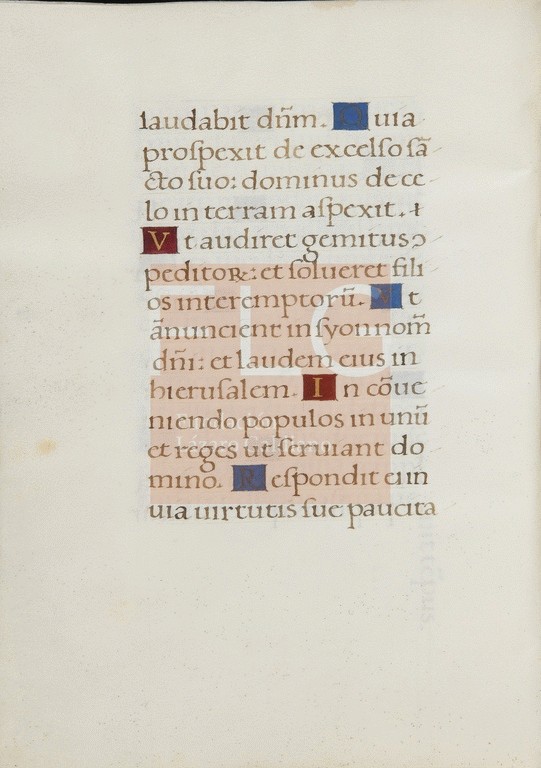 laudabit dn̄m. Quia
proſpexit de excelſo ſā
cto ſuo: dominus de ce
lo in terram aſpexit. +
Vt audiret gemitus ↄ
peditoꝝ: et ſolueret fili
os interemptorū. Vt
ānuncient in ſyon nom̄
dn̄i: et laudem eius in
hieruſalem. In cōue
niendo populos in unū
et reges ut ſeruiant do
mino. Reſpondit ei in
uia uirtutis ſue paucita
FLG
Fundación
Lázaro Galdiano